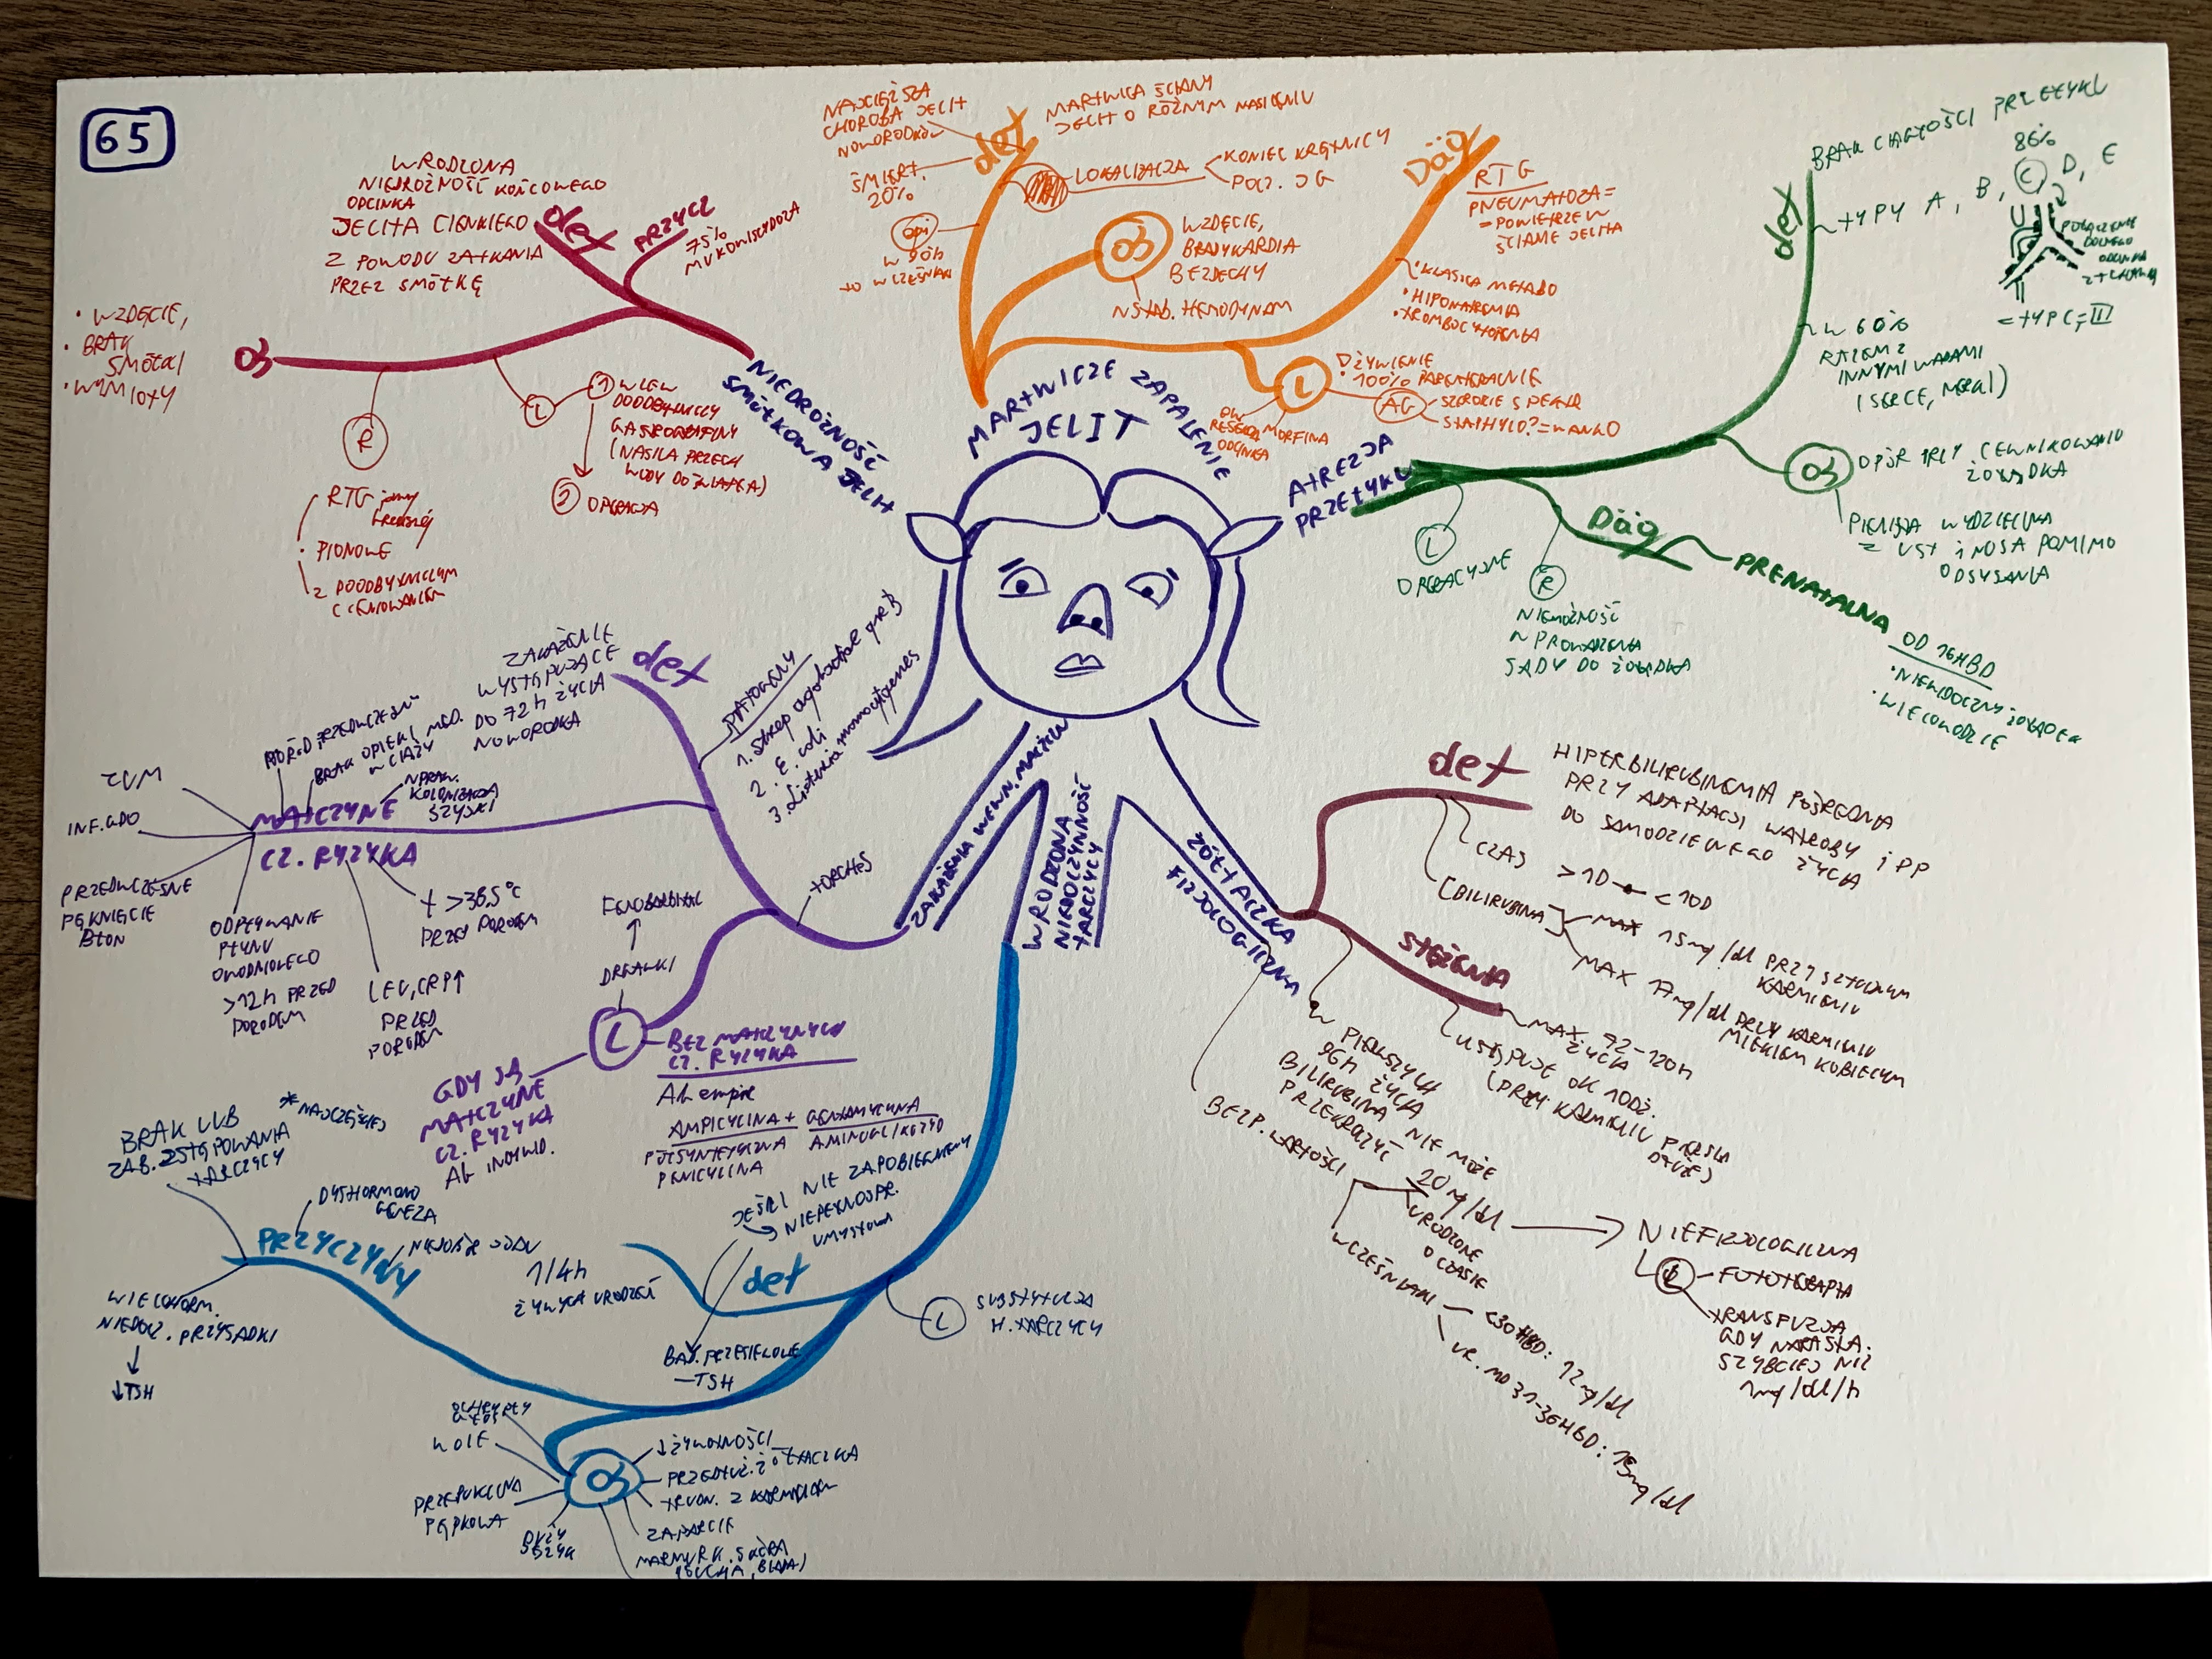 65
WRODZONA
NIEDROŻNOŚĆ KOŃCOWEGO
ODCINKA
JELITA CIENKIEGO
Z POWODU ZATKANIA
PRZEZ SMÓŁKĘ
def
PRZYCZ
75%
MUKOWISCYDOZA
• WZDĘCIE,
• BRAK
SMÓŁKI
• WYMIOTY
Ob
R
RTG jamy
brzusznej
• PIONOWE
Z DOODBYTNICZYM
CIENIOWANIEM
L
1 WLEW
DOODBYTNICZY
GASTROGRAFINY
(NASILA PRZECH
WODY DO ŚWIATŁA)
2 OPERACJA
NIEDROŻNOŚĆ
SMÓŁKOWA JELIT
NAJCIĘŻSZA
CHOROBA JELIT
NOWORODKÓW
def
MARTWICA ŚCIANY
JELIT O RÓŻNYM NASILENIU
ŚMIERT.
20%
LOKALIZACJA
KONIEC KRĘTNICY
POCZ. JG
epi
W 90%
TO WCZEŚNIAKI
Ob
WZDĘCIE,
BRADYKARDIA
BEZDECHY
NSTAB. HEMODYNAM
Däg
RTG
PNEUMATOZA =
= POWIETRZE W
ŚCIANIE JELITA
• KWASICA METABO
• HIPONATREMIA
• TROMBOCYTOPENIA
L
ŻYWIENIE
100% PARENTERALNIE
AG
SZEROKIE SPEKTR
STAPHYLO? = WANKO
MORFINA
EW
RESEKCJA
ODCINKA
MARTWICZE ZAPALENIE
JELIT
ATREZJA
PRZEŁYKU
def
BRAK CIĄGŁOŚCI PRZEŁYKU
86%
TYPY A, B, C, D, E
POŁĄCZENIE
DOLNEGO
ODCINKA
Z TCHAWICĄ
= TYP C, III
W 60%
RAZEM Z
INNYMI WADAMI
(SERCE, NERKI)
Ob
OPÓR PRZY CEWNIKOWANIU
ŻOŁĄDKA
PIENISTA WYDZIELINA
Z UST I NOSA POMIMO
ODSYSANIA
L
OPERACYJNE
Däg
R
NIEMOŻNOŚĆ
WPROWADZENIA
SĄDY DO ŻOŁĄDKA
PRENATALNA
OD 16HBD
• NIEWIDOCZNY ŻOŁĄDEK
• WIELOWODZIE
def
ZAKAŻENIE
WYSTĘPUJĄCE
DO 72h ŻYCIA
NOWORODKA
PATOGENY
1. Strep agalactiae gr B
2. E. coli
3. Listeria monocytogenes
PORÓD PRZEDWCZESNY
BRAK OPIEKI MED.
W CIĄŻY
NPRAW.
KOLONIZACJA
SZYJKI
ZUM
INF. GDO
MATCZYNE
CZ. RYZYKA
PRZEDWCZESNE
PĘKNIĘCIE
BŁON
ODPŁYWANIE
PŁYNU
OWODNIOWEGO
>12h PRZED
PORODEM
LEU, CRP↑
PRZED
PORODEM
t >38,5°C
PRZED PORODEM
+ORCHES
FENOBARBITAL
DRGAWKI
L
BEZ MATCZYNYCH
CZ. RYZYKA
Ab empir
AMPICYLINA + GENTAMYCYNA
PÓŁSYNTETYCZNA
PENICYLINA
AMINOGLIKOZYD
GDY SĄ
MATCZYNE
CZ. RYZYKA
Ab INDYWID.
ZAKAŻENIA WEWN. MACICZN
WRODZONA
NIEDOCZYNNOŚĆ
TARCZYCY
BRAK LUB
ZAB. ZSTĘPOWANIA
TARCZYCY
* NAJCZĘŚCIEJ
DYSHORMONO
GENEZA
PRZYCZYNY
NIEDOBÓR JODU
WIELOHORM.
NIEDOCZ. PRZYSADKI
↓
↓TSH
1/4h
ŻYWYCH URODZEŃ
def
JEŚLI NIE ZAPOBIEGNIEMY
→ NIEPEŁNOSPR.
UMYSŁOWA
BAD. PRZESIEWOWE
—TSH
L
SUBSTYTUCJA
H. TARCZYCY
Ob
WOLE
PRZEPUKLINA
PĘPKOWA
DUŻY
JĘZYK
↓ŻYWOTNOŚCI
PRZEDŁUŻ. ŻÓŁTACZKA
TRUDN. Z KARMIENIEM
ZAPARCIE
MARMURK. SKÓRA
(SUCHA, BLADA)
ŻÓŁTACZKA
FIZJOLOGICZNA
def
HIPERBILIRUBINEMIA POŚREDNIA
PRZY ADAPTACJI WĄTROBY I PP
DO SAMODZIELNEGO ŻYCIA
CZAS >1D — <10D
[BILIRUBINA
MAX 15mg/dl PRZY SZTUCZNYM
KARMIENIU
MAX 17mg/dl PRZY KARMIENIU
MLEKIEM KOBIECYM
STĘŻENIA
MAX 72-120h
ŻYCIA
USTĘPUJE OK 10DŻ.
(PRZY KARMIENIU PIERSIĄ
DŁUŻEJ)
W PIERWSZYCH
96h ŻYCIA
BILIRUBINA NIE MOŻE
PRZEKROCZYĆ
20mg/dl
NIEFIZJOLOGICZNA
L
FOTOTERAPIA
TRANSFUZJA
GDY NARASTA
SZYBCIEJ NIŻ
1mg/dl/h
BEZP. WARTOŚCI
URODZONE
O CZASIE
WCZEŚNIAKI
<30HBD: 12mg/dl
UR. MD 31-36HBD: 15mg/dl